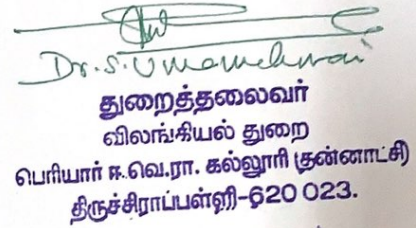 Dr. S. Umamaheswari
துறைத்தலைவர்
விலங்கியல் துறை
பெரியார் ஈ.வெ.ரா. கல்லூரி (தன்னாட்சி)
திருச்சிராப்பள்ளி-620 023.